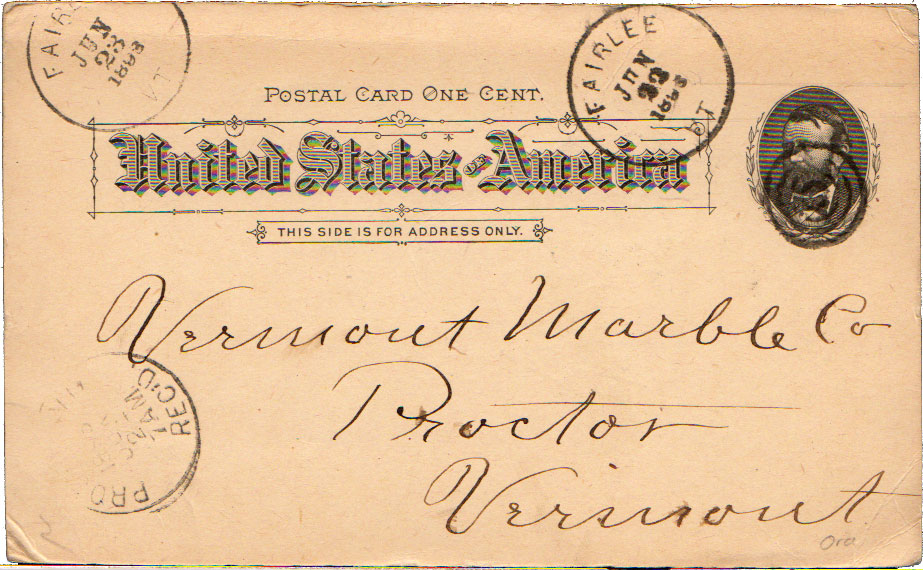 FAIR
JUN
23
1893
VT
FAIRLEE
JUN
22
1893
VT
POSTAL CARD ONE CENT.
United States OF America
THIS SIDE IS FOR ADDRESS ONLY.
Vermont Marble Co
Proctor
Vermont
PRO
1 AM
REC'D
Ora